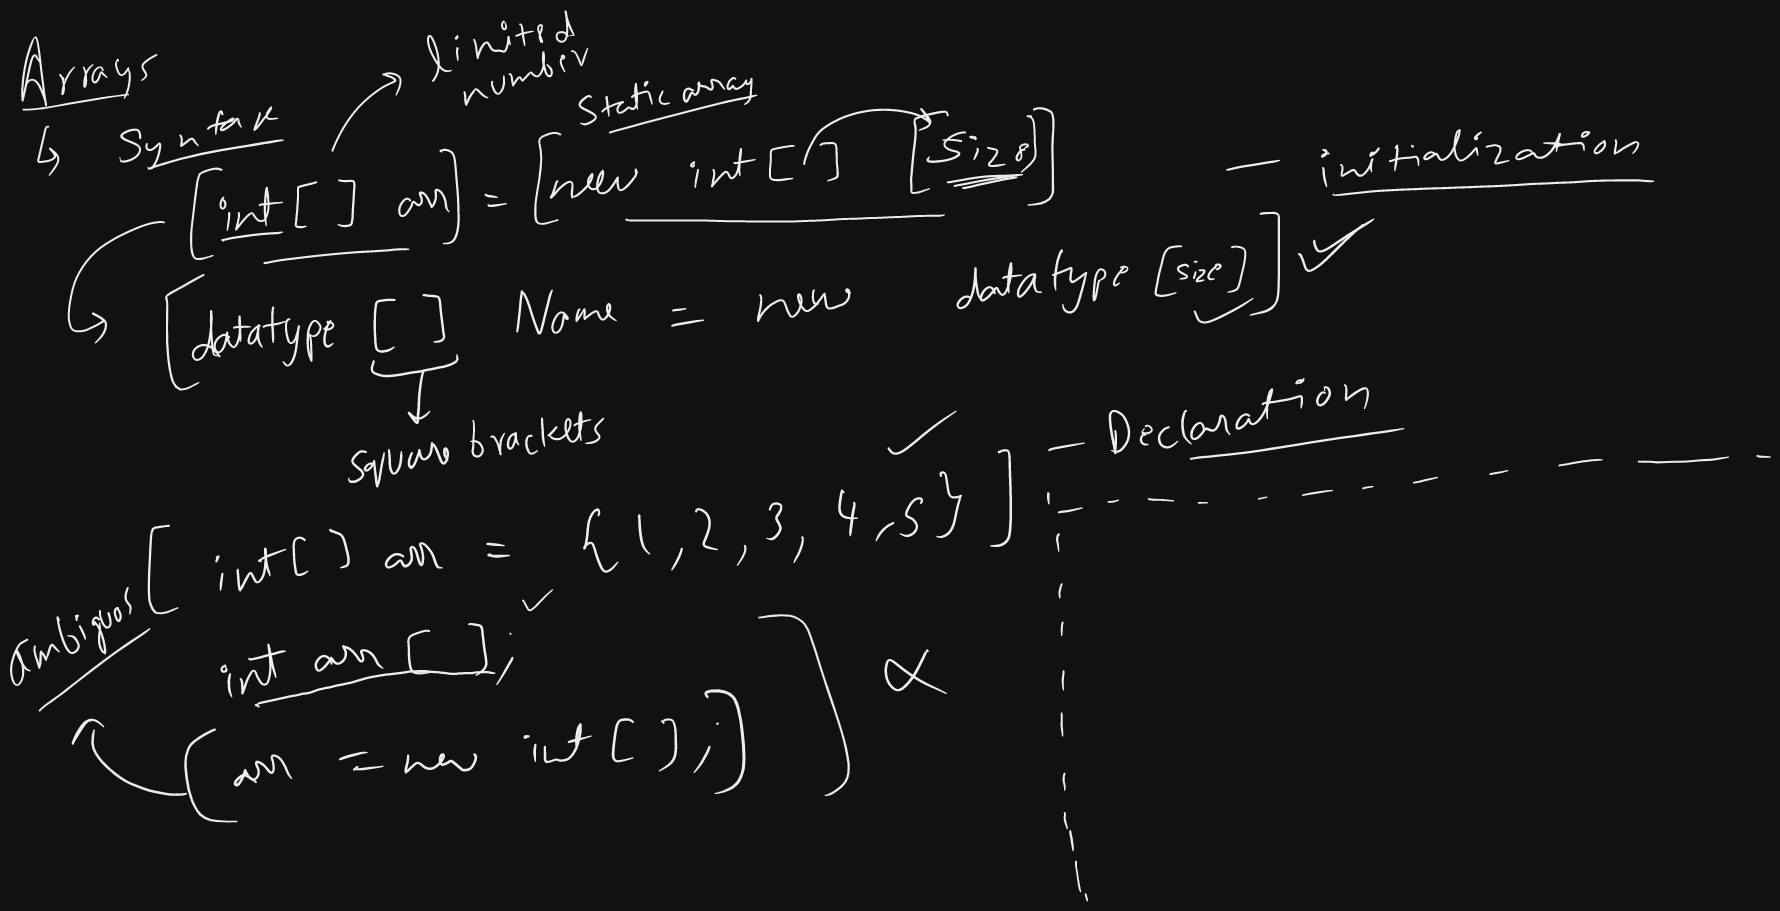 Arrays
limited
number
↳ Syntax
Static array
[int[] arr] = [new int[] [size]] — initialization
[datatype [] Name = new datatype [size]] ✓
square brackets
— Declaration
[int[] arr = {1, 2, 3, 4, 5}]
ambiguos
int arr[];
(arr = new int[];]